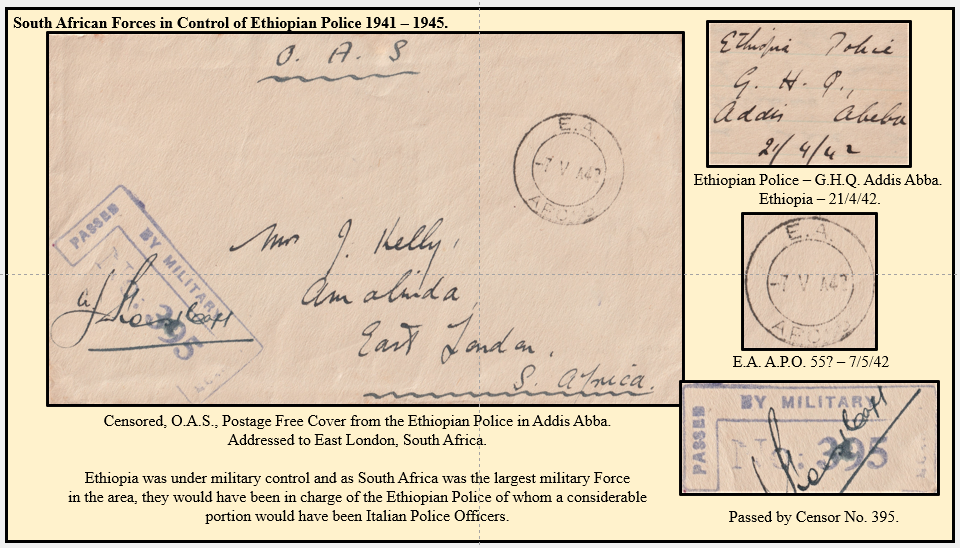 South African Forces in Control of Ethiopian Police 1941 – 1945.
O. A. S
E.A.
-7 V A42
A.P.O.
PASSED BY MILITARY
No. 395
Mrs J. Kelly,
Amalinda,
East London,
S. Africa.
Ethiopia Police
G. H. Q.,
Addis Abeba
21/4/42
Ethiopian Police – G.H.Q. Addis Abba.
Ethiopia – 21/4/42.
E.A.
-7 V A42
A.P.O.
E.A. A.P.O. 55? – 7/5/42
PASSED BY MILITARY
No. 395
Passed by Censor No. 395.
Censored, O.A.S., Postage Free Cover from the Ethiopian Police in Addis Abba.
Addressed to East London, South Africa.
Ethiopia was under military control and as South Africa was the largest military Force
in the area, they would have been in charge of the Ethiopian Police of whom a considerable
portion would have been Italian Police Officers.